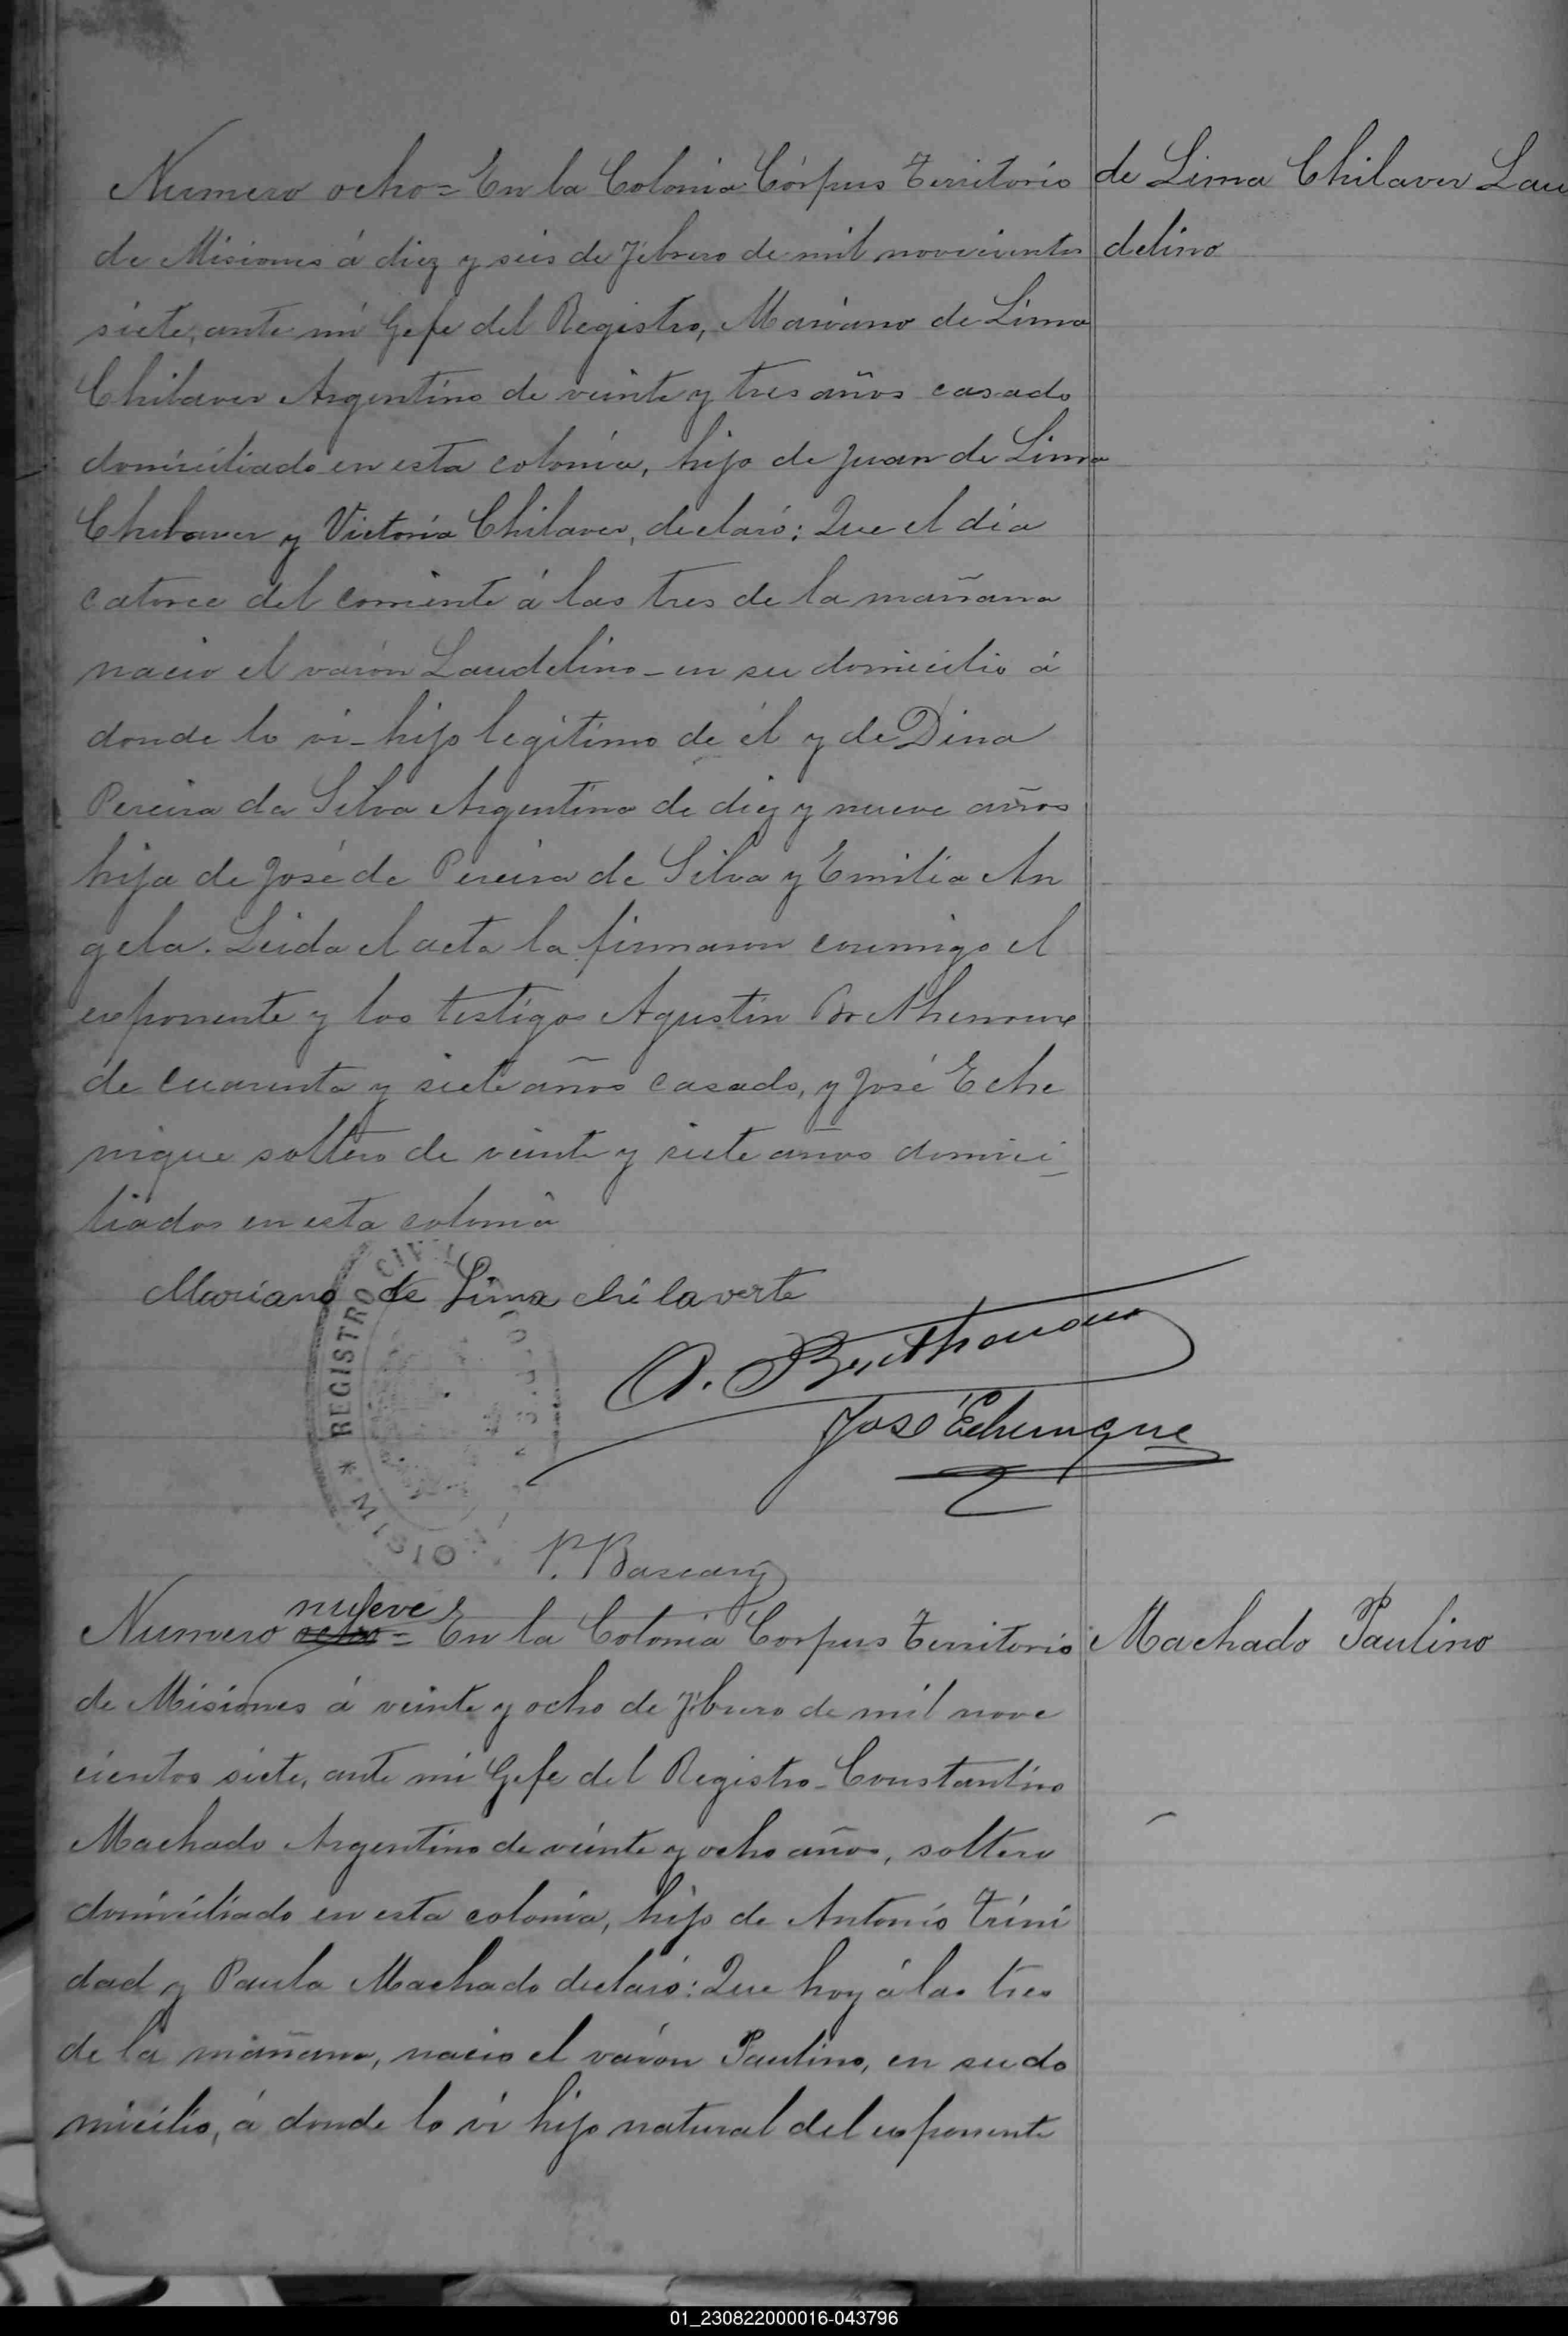 Numero ocho = En la Colonia Córpus Territorio
de Lima Chilaver Lau
de Misiones á diez y seis de Febrero de mil novecientos
delino
siete, ante mi Gefe del Registro, Mariano de Lima
Chilaver Argentino de veinte y tres años casado
domiciliado en esta colonia, hijo de Juan de Lima
Chilaver y Victoria Chilaver, declaró: Que el dia
catorce del corriente á las tres de la mañana
nacio el varón Laudelino _ en su domicilio á
donde lo vi _ hijo legitimo de él y de Dina
Pereira da Silva Argentina de diez y nueve años
hija de José de Pereira de Silva y Emilia An
gela. Leida el acta la firmaron conmigo el
exponente y los testigos Agustin
de cuarenta y siete años casado, y José Eche
nique soltero de veinte y siete años domici_
liados en esta colonia
Mariano de Lima chilaverte
REGISTRO CIVIL
A.
José Echenique
MISION
P.
nueve
Numero ocho = En la Colonia Corpus Territorio
Machado Paulino
de Misiones á veinte y ocho de Febrero de mil nove
cientos siete, ante mi Gefe del Registro _ Constantino
Machado Argentino de veinte y ocho años, soltero
domiciliado en esta colonia, hijo de Antonio Trini
dad y Paula Machado declaró: Que hoy á las tres
de la mañana, nacio el varón Paulino, en su do
micilio, á donde lo vi hijo natural del exponente
01_230822000016-043796